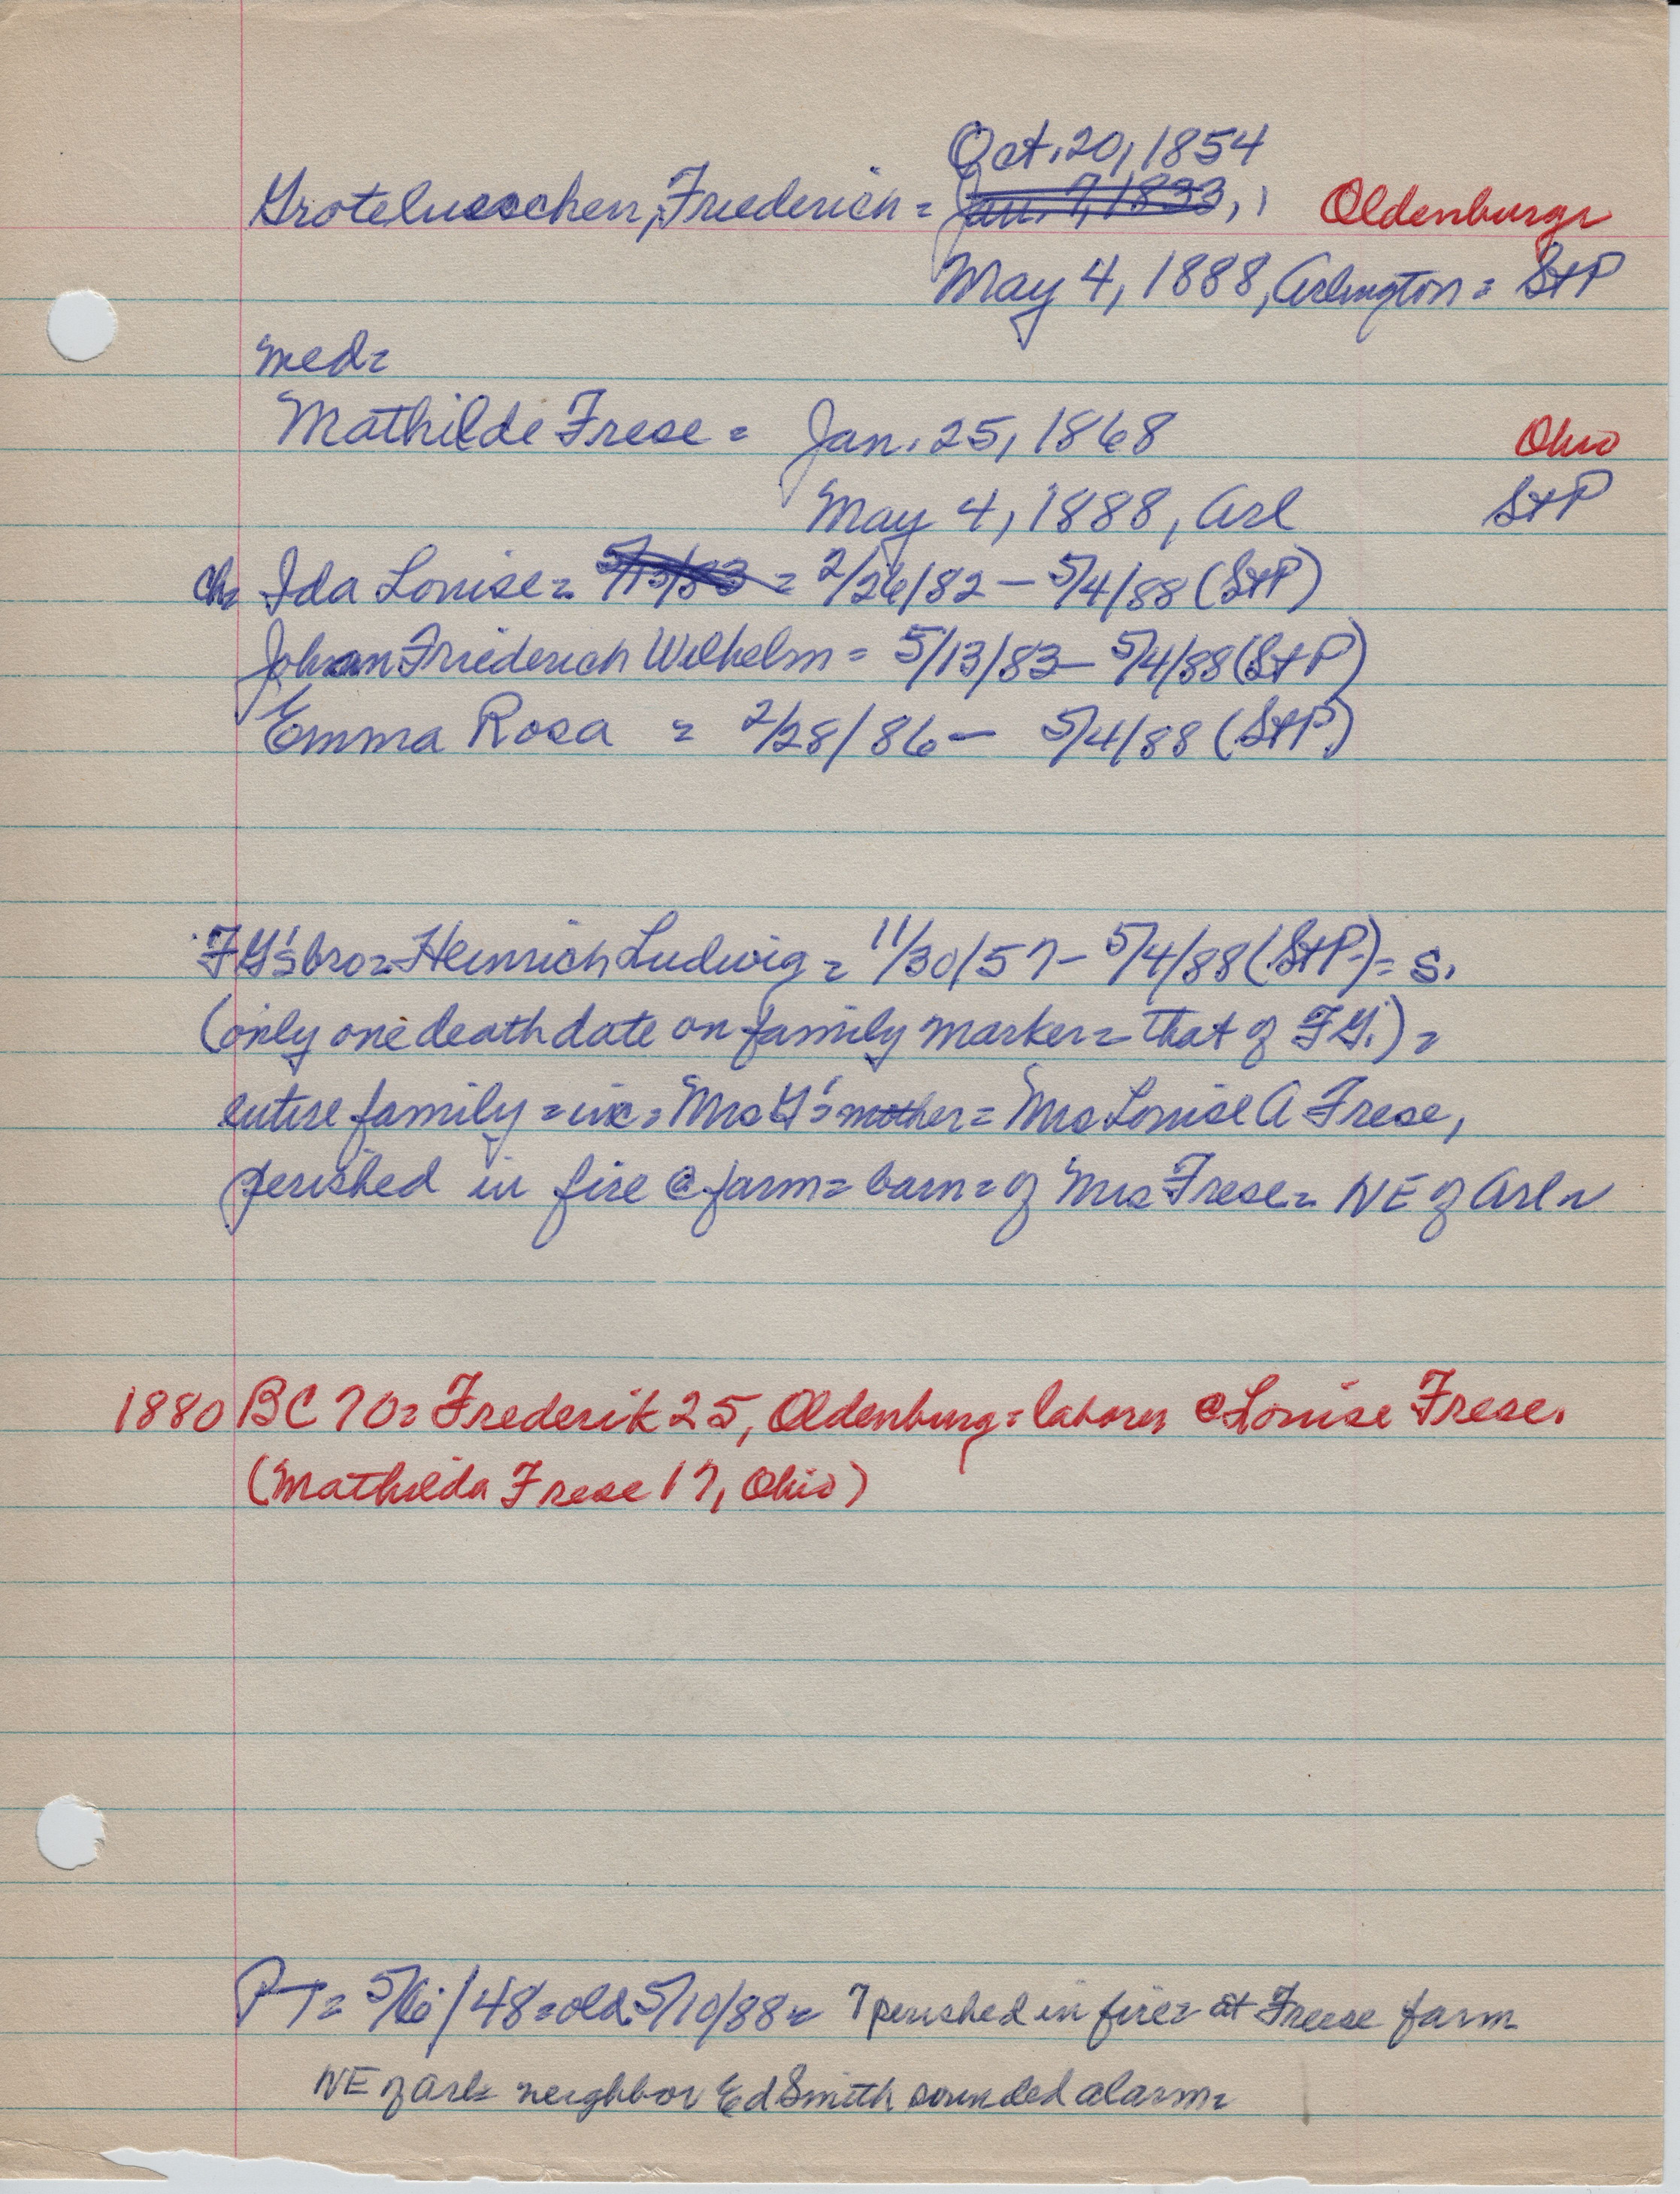 Oct. 20, 1854
Grotelueschen, Friederich = Jan. 7, 1833, , Oldenburg
May 4, 1888, Arlington = StP
med=
Mathilde Frese = Jan. 25, 1868 Ohio
May 4, 1888, Arl StP
ch= Ida Louise = 5/13/83 = 2/26/82 – 5/4/88 (StP)
Johann Friederich Wilhelm = 5/13/83 – 5/4/88 (StP)
Emma Rosa = 2/28/86 – 5/4/88 (StP)
FG's bro = Heinrich Ludwig = 11/30/57 – 5/4/88 (StP) = s.
(only one death date on family marker = that of FG.) =
entire family = inc = Mrs G's mother = Mrs Louise A Frese,
perished in fire @ farm = barn = of Mrs Frese = NE of Arl =
1880 BC 70 = Frederik 25, Oldenburg = laborer @ Louise Frese.
(Mathilda Frese 17, Ohio)
PT = 5/6/48 = old 5/10/88 = 7 perished in fire = at Freese farm
NE of Arl = neighbor Ed Smith sounded alarm =